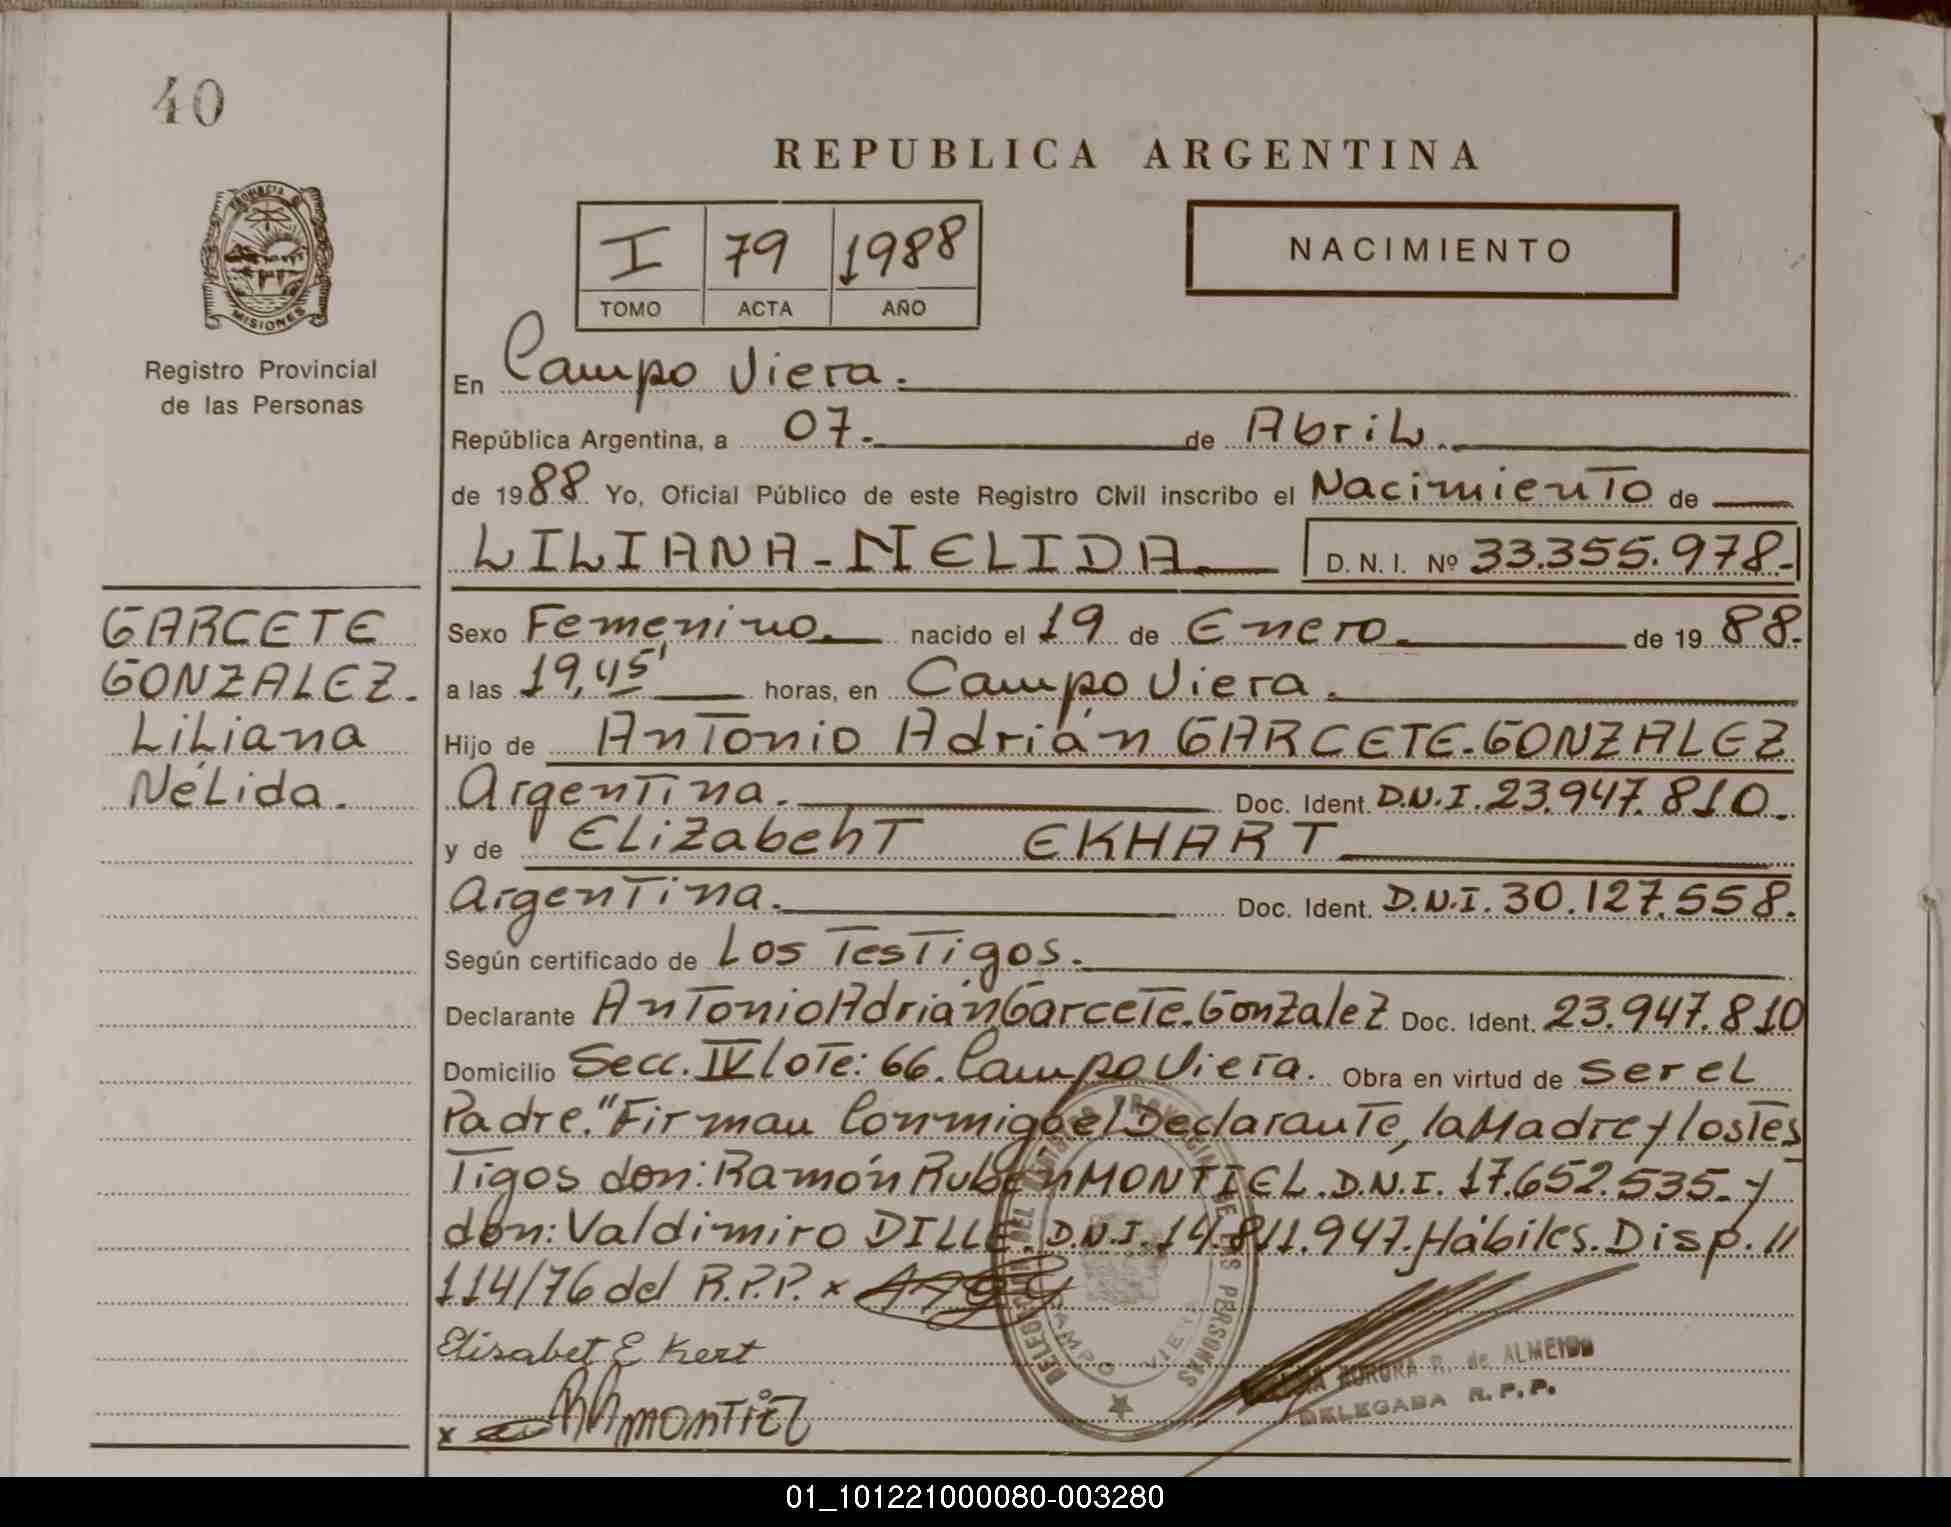 40
REPUBLICA ARGENTINA
I 79 1988
TOMO ACTA AÑO
NACIMIENTO
PROVINCIA
MISIONES
Registro Provincial
de las Personas
En Campo Viera.
República Argentina, a 07.- de Abril.
de 1988 Yo, Oficial Público de este Registro Civil inscribo el Nacimiento de
LILIANA-NELIDA D. N. I. Nº 33.355.978.-
GARCETE
GONZALEZ.
Liliana
Nélida.
Sexo Femenino. nacido el 19 de Enero. de 1988.
a las 19,45' horas, en Campo Viera.
Hijo de Antonio Adrián GARCETE-GONZALEZ
Argentina. Doc. Ident. D.N.I. 23.947.810.
y de Elizabeht EKHART
Argentina. Doc. Ident. D.N.I. 30.127.558.
Según certificado de Los Testigos.
Declarante Antonio Adrián Garcete-Gonzalez Doc. Ident. 23.947.810
Domicilio Secc. IV lote: 66. Campo Viera. Obra en virtud de ser el
Padre." Firman Conmigo el Declarante, la Madre y los Tes
Tigos don: Ramón Rubén MONTIEL. D.N.I. 17.652.535. y
don: Valdimiro DILLE. D.N.I. 14.811.947. Hábiles. Disp. 11
114/76 del R.P.P. x
Elisabet E kert
x RRMONTIEL
CAMPO VIERA
AURORA R. de ALMEIDA
DELEGADA R.P.P.
01_101221000080-003280